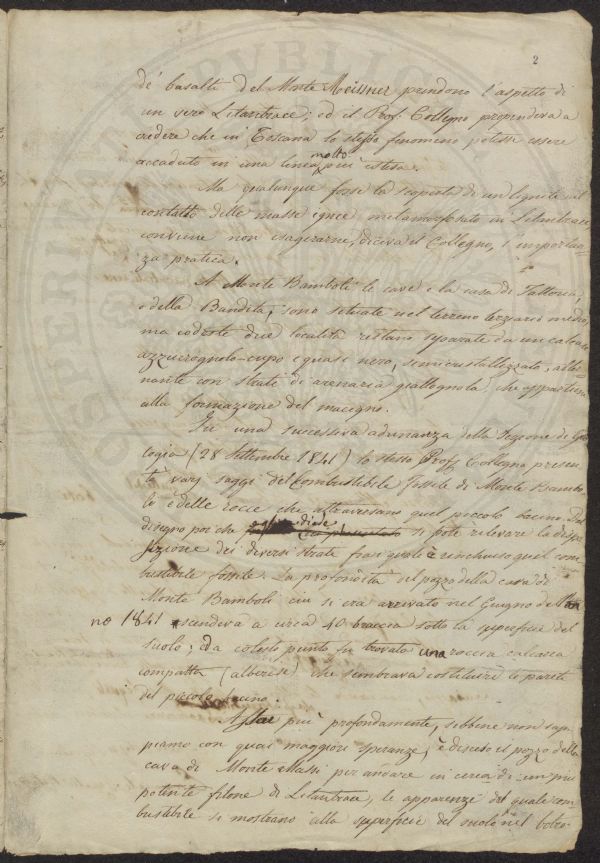 2
de' basalti del Monte Meissner prendono l'aspetto di
un vero Litantrace; ed il Prof. Collegno propendeva a
credere che in Toscana lo stesso fenomeno potesse essere
accaduto in una linea molto più estesa.
Ma qualunque fosse la scoperta di un lignite nel
contatto delle masse ignee metamorfosato in Litantrace
conviene non esagerarne, diceva il Collegno, l'importan-
za pratica.
A Monte Bamboli le cave e la casa di Fattoria,
o della Bandita, sono situate nel terreno terziario medio,
ma codeste due località restano separate da un calcare
azzurrognolo-cupo e quasi nero, semicristallizzato, alter-
nante con strati di arenaria giallognola, che appartiene
alla formazione del macigno.
In una successiva adunanza della Sezione di Geo-
logia (28 Settembre 1841) lo stesso Prof. Collegno presen-
tò varj saggi del Combustibile fossile di Monte Bambo-
li e delle rocce che attraversano quel piccolo bacino. Dal
disegno poi che diede si potè rilevare la dispo-
sizione dei diversi strati fra i quali è rinchiuso quel com-
bustibile fossile. La profondità del pozzo della cava di
Monte Bamboli cui si era arrivato nel Giugno dell'an-
no 1841 ascendeva a circa 40 braccia sotto la superficie del
suolo; e da codesto punto fu trovata una roccia calcarea
compatta (alberese) che sembrava costituire le pareti
del piccolo bacino.
Assai più profondamente, sebbene non sap-
piamo con quai maggiori speranze, è disceso il pozzo della
cava di Monte Massi per andare in cerca di un più
potente filone di Litantrace, le apparenze del quale com-
bustibile si mostrano alla superficie del suolo nel botro